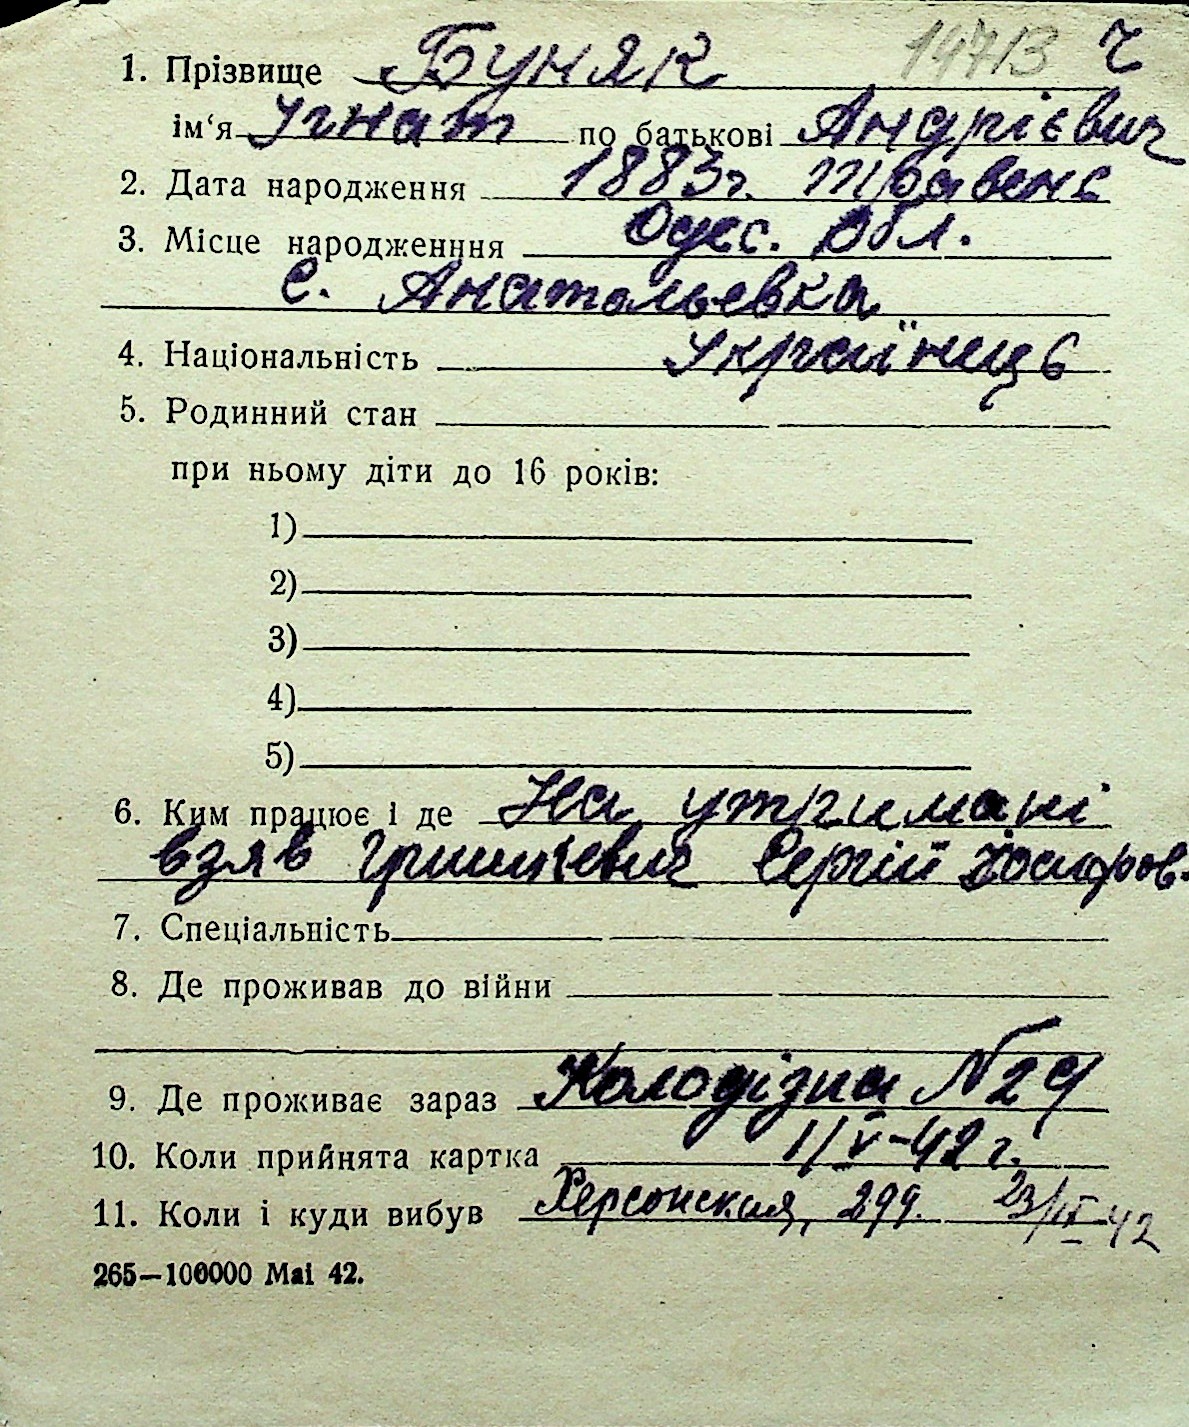 14713 Ч
1. Прізвище Буняк
ім‘я Угнат по батькові Андрієвич
2. Дата народження 1883г. Травень
3. Місце народженння Одес. Обл.
с. Анатольевка
4. Національність Українець
5. Родинний стан
при ньому діти до 16 років:
1)
2)
3)
4)
5)
6. Ким працює і де На утримані
взяв Гришкевич Сергій Йосифов.
7. Спеціальність
8. Де проживав до війни
9. Де проживає зараз Колодізна N29
10. Коли прийнята картка 1/V-42 г.
11. Коли і куди вибув Херсонская, 299. 23/IX 42
265—100000 Маі 42.